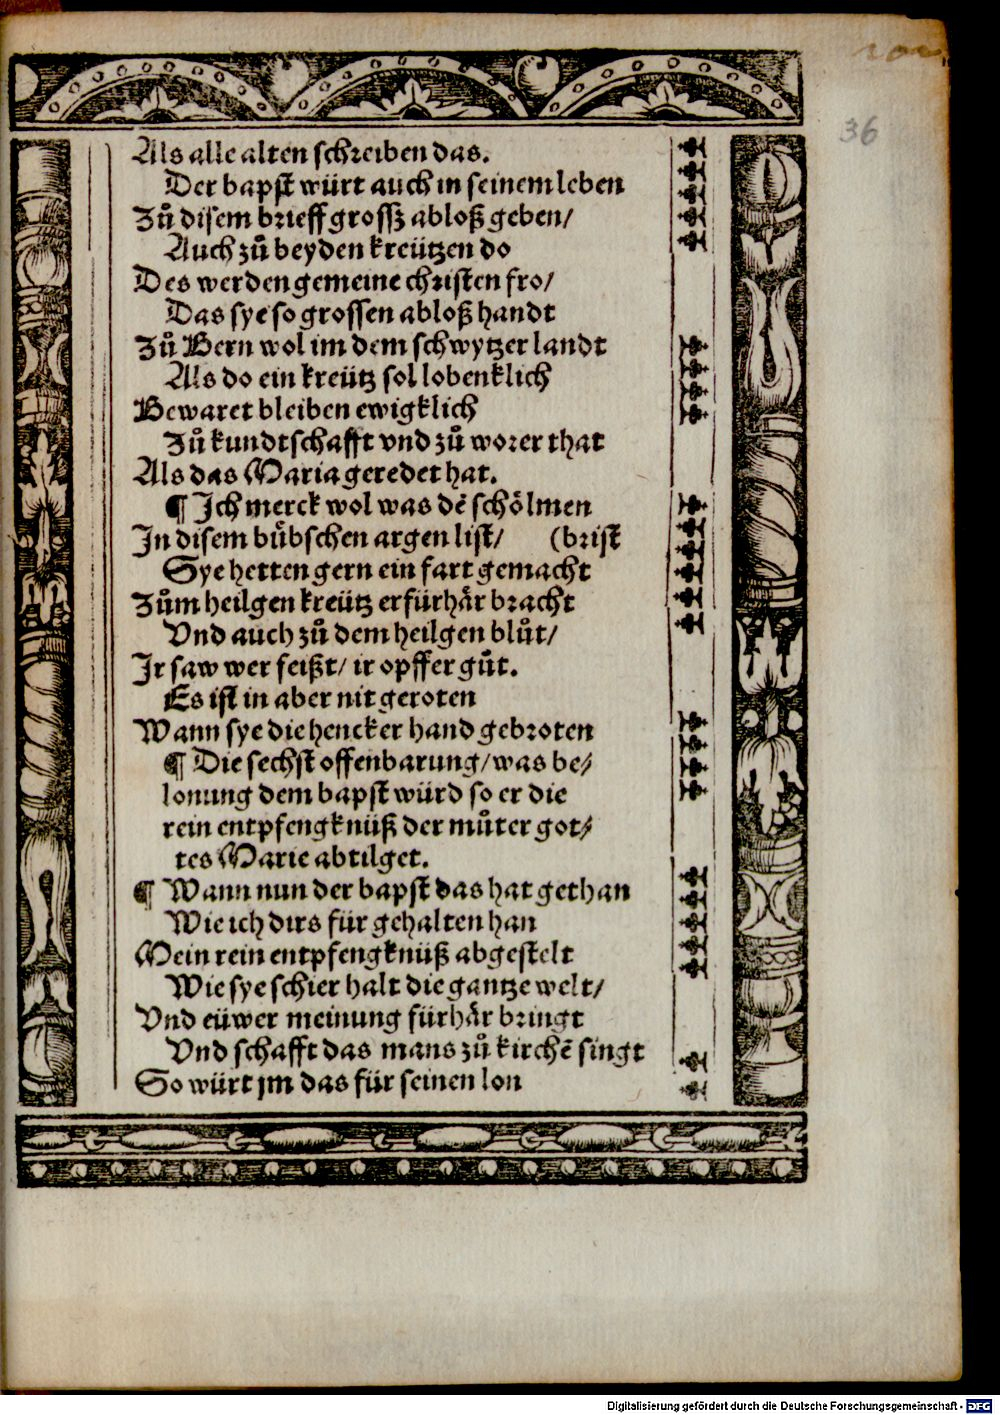 36
Als alle alten schreiben das.
Der bapst würt auch in seinem leben
Zů disem brieff grossz abloß geben/
Auch zů beyden kreützen do
Des werden gemeine christen fro/
Das sye so grossen abloß handt
Zů Bern wol im dem schwytzer landt
Als do ein kreütz sol lobenklich
Bewaret bleiben ewigklich
Zů kundtschafft vnd zů worer that
Als das Maria geredet hat.
¶ Ich merck wol was dē schölmen
In disem bůbschen argen list/ (brist
Sye hetten gern ein fart gemacht
Zům heilgen kreütz erfürhår bracht
Vnd auch zů dem heilgen blůt/
Ir saw wer feißt/ ir opffer gůt.
Es ist in aber nit geroten
Wann sye die hencker hand gebroten
¶ Die sechst offenbarung/ was be⸗
lonung dem bapst würd so er die
rein entpfengknüß der můter got⸗
tes Marie abtilget.
¶ Wann nun der bapst das hat gethan
Wie ich dirs für gehalten han
Mein rein entpfengknüß abgestelt
Wie sye schier halt die gantze welt/
Vnd eüwer meinung fürhår bringt
Vnd schafft das mans zů kirchē singt
So würt jm das für seinen lon
Digitalisierung gefördert durch die Deutsche Forschungsgemeinschaft - DFG